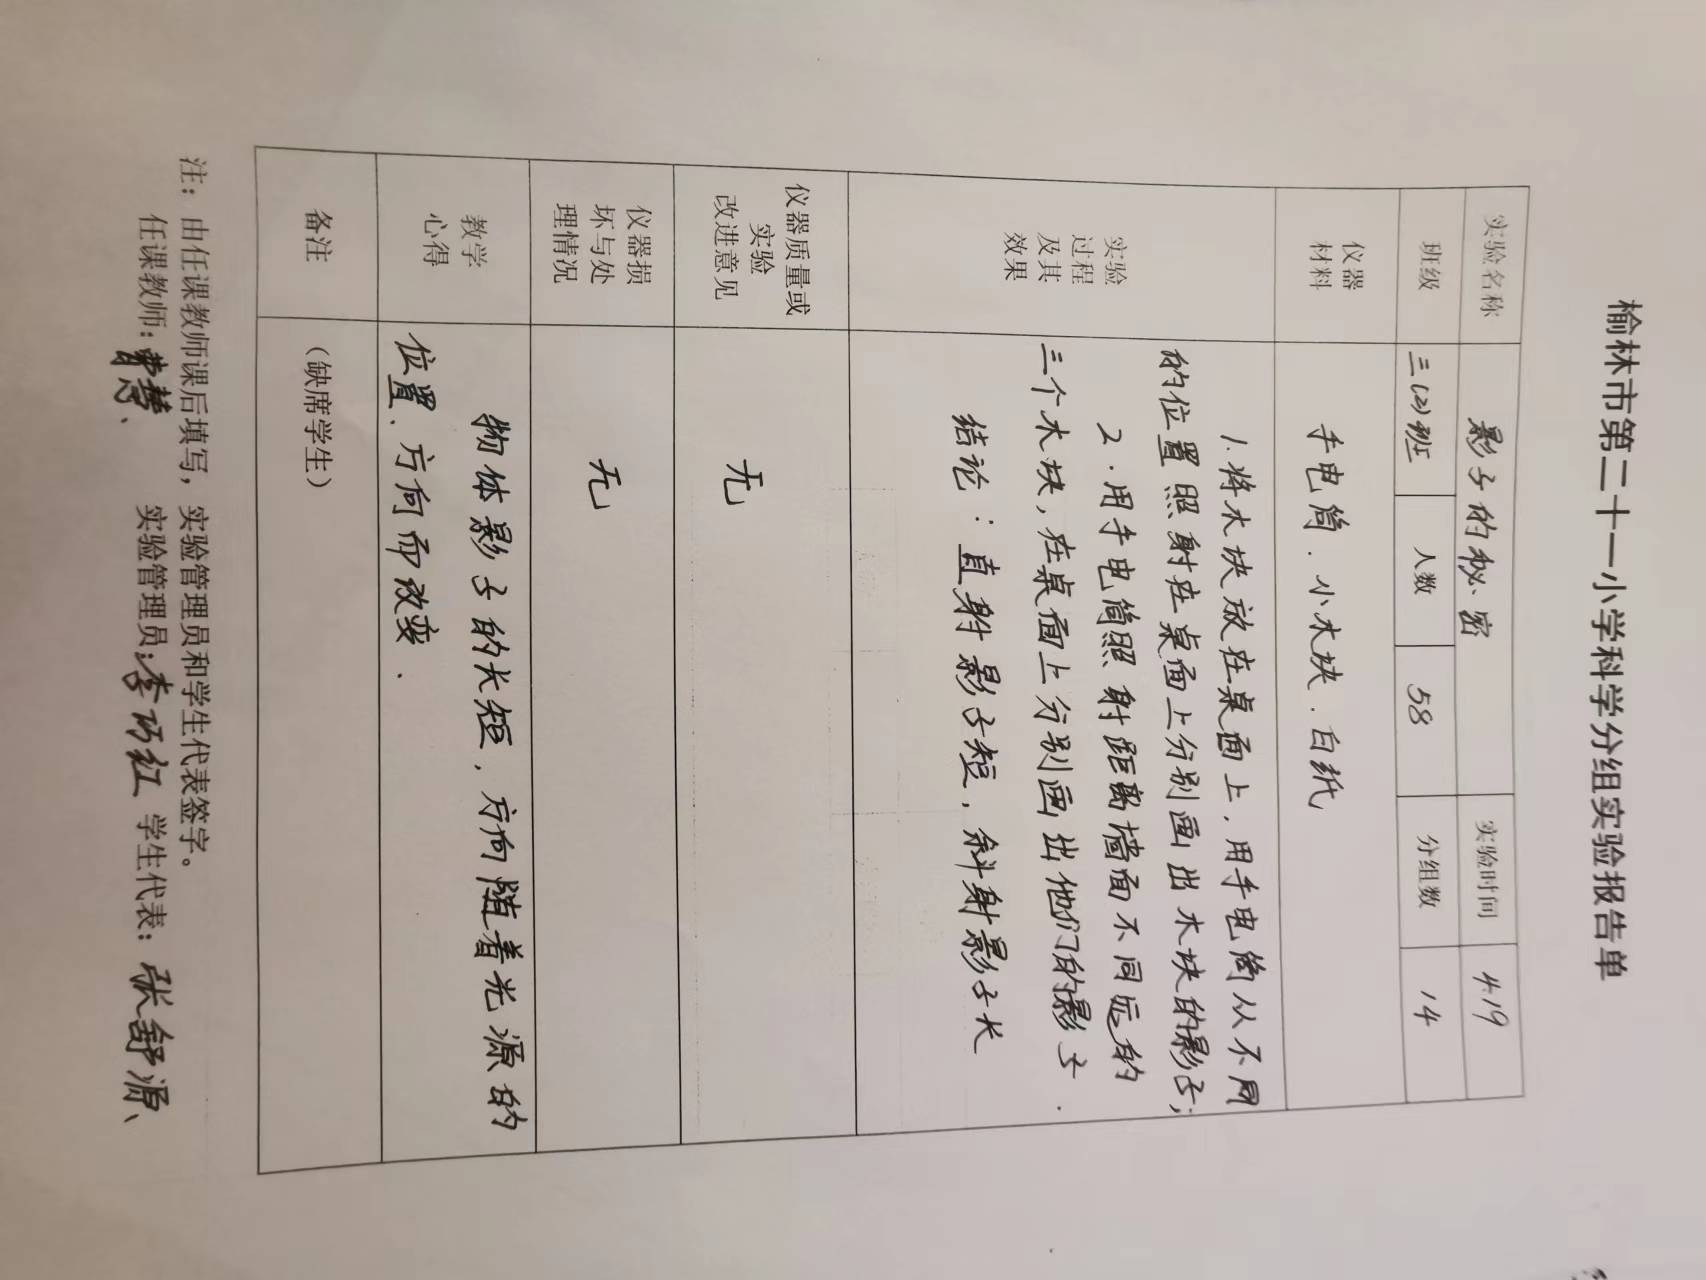 榆林市第二十一小学科学分组实验报告单
实验名称 影子的秘密 实验时间 4.19
班级 三(2)班 人数 58 分组数 14
仪器
材料
手电筒.小木块.白纸
实验
过程
及其
效果
1.将木块放在桌面上,用手电筒从不同
的位置照射在桌面上分别画出木块的影子;
2.用手电筒照射距离墙面不同远的
三个木块,在桌面上分别画出他们的影子.
结论:直射影子短,斜射影子长
仪器质量或
实验
改进意见
无
仪器损
坏与处
理情况
无
教学
心得
物体影子的长短,方向随着光源的
位置、方向而改变.
备注 (缺席学生)
注:由任课教师课后填写,实验管理员和学生代表签字。
任课教师: 实验管理员:李巧红 学生代表:张舒源